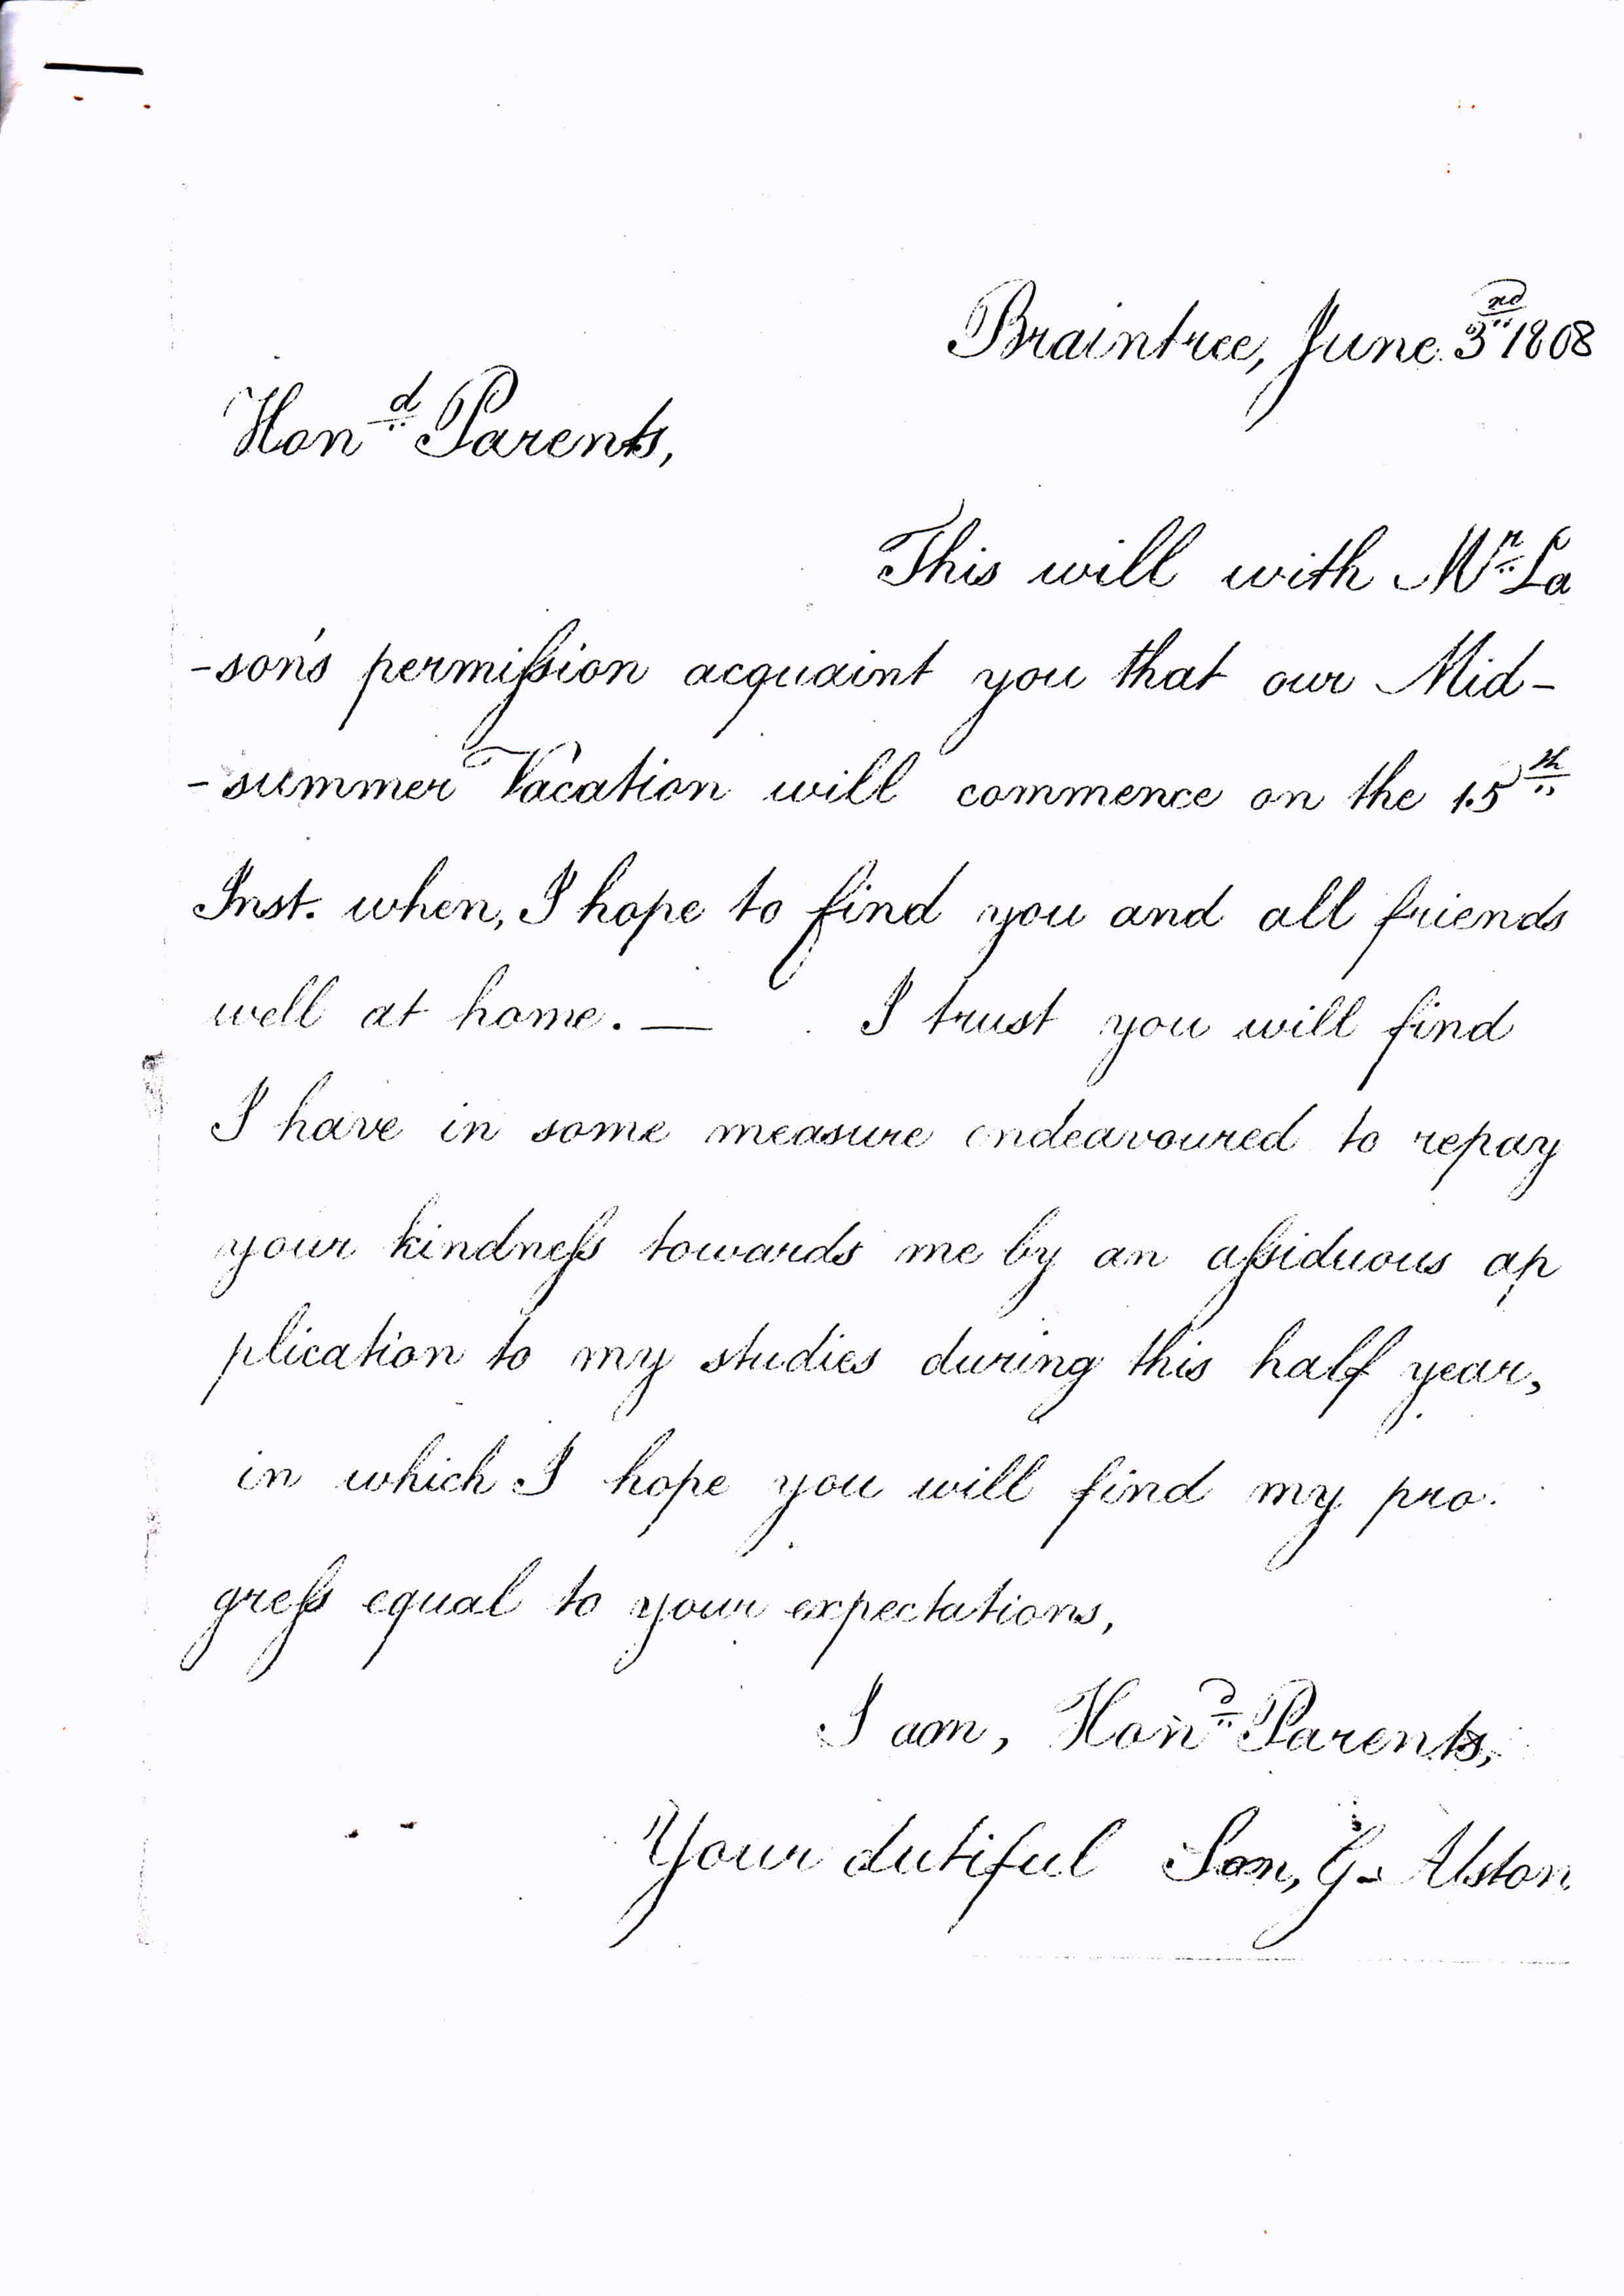 Braintree, June 3nd 1808
Hond Parents,
This will with Mr La
-son's permiſsion acquaint you that our Mid-
-summer Vacation will commence on the 15th
Inst. when, I hope to find you and all friends
well at home. — I trust you will find
I have in some measure endeavoured to repay
your kindneſs towards me by an aſsiduous ap
plication to my studies during this half year,
in which I hope you will find my pro-
greſs equal to your expectations,
I am, Hond Parents,
Your dutiful Son, G- Alston.